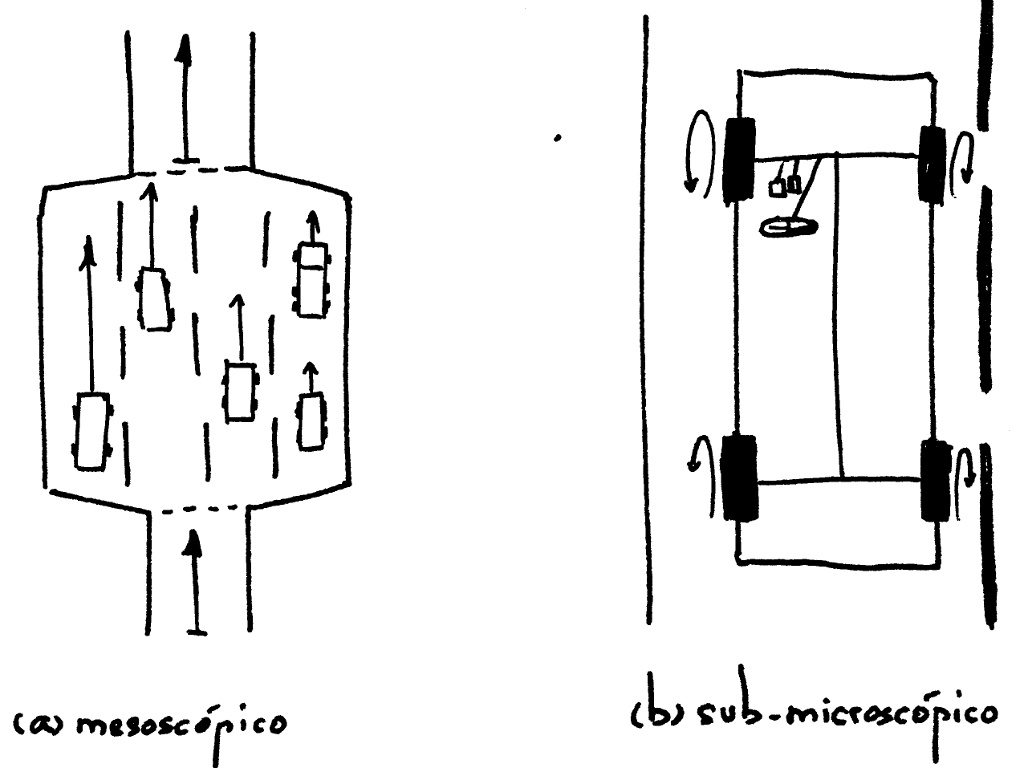 (a) mesoscópico
(b) sub-microscópico